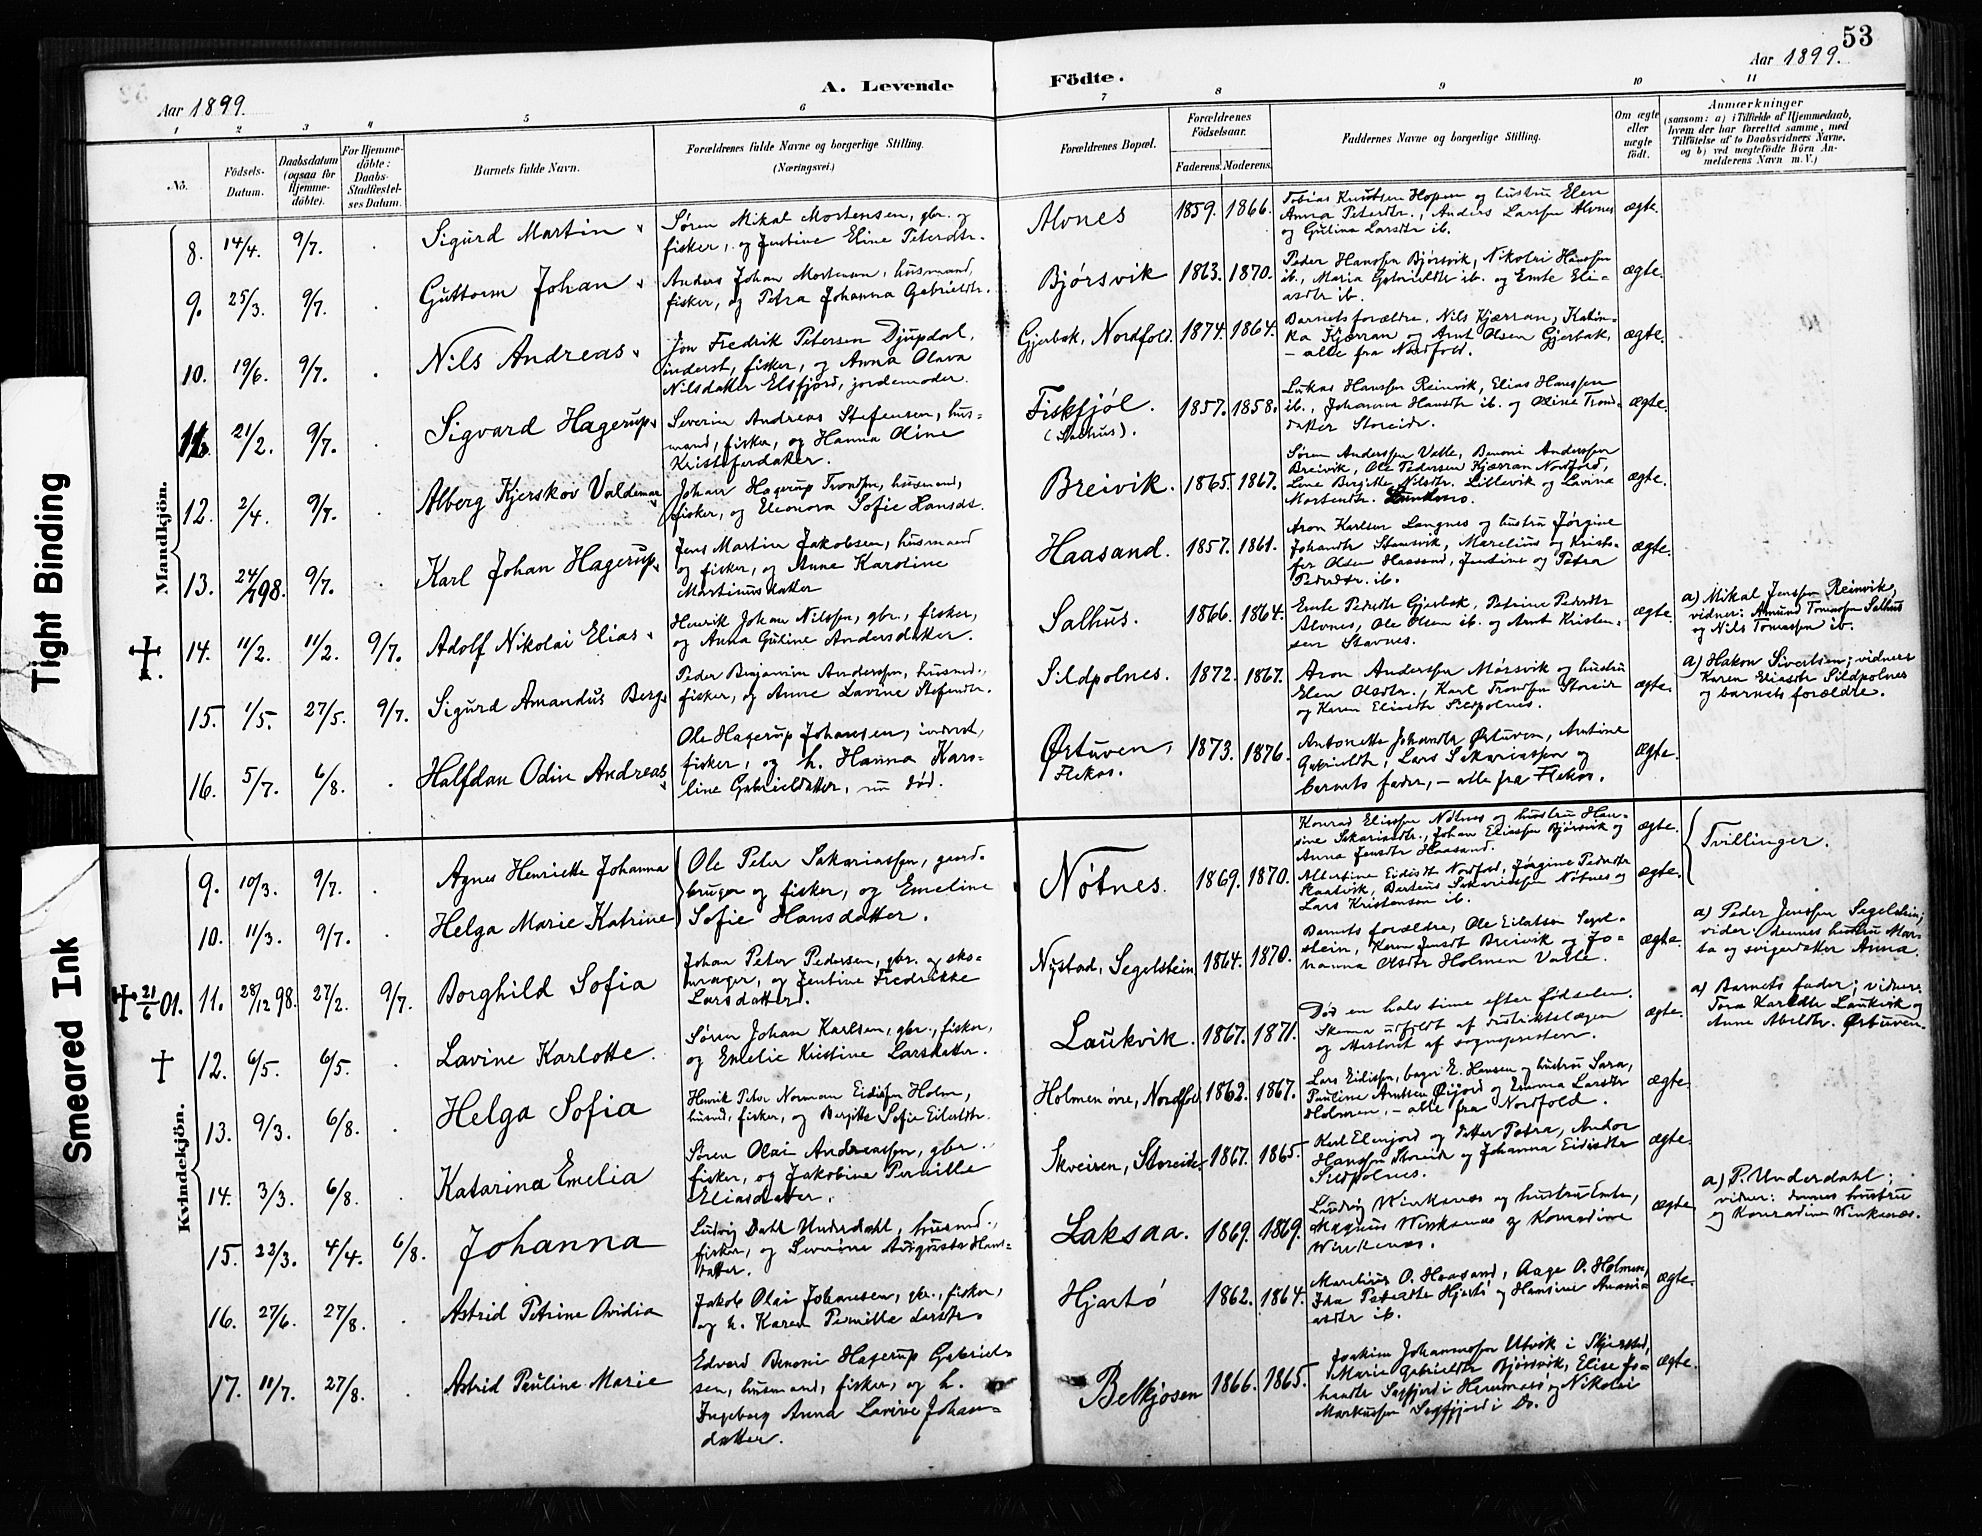 53
Aar 1899.
A. Levende
Födte.
Aar 1899.
1 2 3 4 5 6 7 8 9 10 11
No.
Födsels-
Datum.
Daabsdatum
(ogsaa for
Hjemme-
döbte).
For Hjemme-
döbte:
Daabs-
Stadfæstel-
ses Datum.
Barnets fulde Navn.
Forældrenes fulde Navne og borgerlige Stilling.
(Næringsvei.)
Forældrenes Bopæl.
Forældrenes
Födselsaar.
Faderens. Moderens.
Faddernes Navne og borgerlige Stilling.
Om ægte
eller
uægte
födt.
Anmærkninger
(saasom: a) i Tilfælde af Hjemmedaab,
hvem der har forrettet samme, med
Tilföielse af to Daabsvidners Navne,
og b) ved uægtefödte Börn An-
melderens Navn m. V.)
Mandkjön.
8. 14/4. 9/7. Sigurd Martin
Søren Mikal Mortensen, gbr. og
fisker, og Jentine Eline Petersdtr.
Alvnes 1859. 1866.
Tobias Knudsen Hopen og hustru Elen
Anna Petersdtr., Anders Larssen Alvnes
og Gutina Larsdtr ib.
ægte.
9. 25/3. 9/7. Guttorm Johan
Anders Johan Mortensen, husmand,
fisker, og Petra Johanna Gabrielsdtr.
Bjørsvik 1863. 1870.
Peder Hanssen Bjørsvik, Nikolai Hanssen
ib., Maria Gabrielsdtr ib. og Emte Eli-
asdtr ib.
ægte.
10. 19/6. 9/7. Nils Andreas
Jon Fredrik Petersen Djupdal,
inderst, fisker, og Anna Olava
Nilsdatter Elsfjord, jordemoder.
Gjerbak, Nordfold. 1874. 1864.
Barnets forældre, Nils Kjærran, Katin-
ka Kjærran og Arnt Olsen Gjerbak,
– alle fra Nordfold.
ægte.
11. 21/2. 9/7. Sigvard Hagerup
Severin Andreas Stefensen, hus-
mand, fisker, og Hanna Oline
Kristofersdatter.
Fiskfjøl.
(Salhus).
1857. 1858.
Lukas Hanssen Reinvik, Elias Hanssen
ib., Johanna Hansdtr ib. og Oline Trond-
datter Storeide.
ægte.
12. 2/4. 9/7. Alberg Kjerskov Valdemar
Johan Hagerup Trondsen, husmand,
fisker, og Eleonora Sofie Hansdt.
Breivik. 1865. 1867.
Søren Anderssen Valle, Benoni Anderssen
Breivik, Ole Pedersen Kjærran Nordfold,
Lene Birgitte Nilsdtr. Lillevik og Lavina
Mortensdtr.
ægte.
13. 24/7 98. 9/7. Karl Johan Hagerup
Jens Martin Jakobsen, husmand
og fisker, og Anne Karoline
Martinusdatter
Haasand. 1857. 1861.
Aron Karlsen Langnes og hustru Jørgine
Johansdtr Stamsvik, Marelius og Kristo-
fer Olsen Haasand, Jentine og Petra
Pedersdtr. ib.
ægte.
14. 11/2. 11/2. 9/7. Adolf Nikolai Elias
Henrik Johan Nilssen, gbr., fisker,
og Anna Guline Andersdatter.
Salhus. 1866. 1864.
Emte Pedersdtr Gjerbak, Petrine Pedersdtr
Alvnes, Ole Olsen ib. og Arnt Kristen-
sen Stavnes.
ægte.
a) Mikal Jenssen Reinvik,
vidner: Amund Tomassen Salhus
og Nils Tomassen ib.
15. 1/5. 27/5. 9/7. Sigurd Amandus Berg
Peder Benjamin Anderssen, husmd.,
fisker, og Anne Lavine Stefensdtr.
Sildpolnes. 1872. 1867.
Aron Anderssen Mørsvik og hustru
Elen Olsdtr., Karl Trondsen Storeide
og Karen Eliasdtr Sildpolnes.
ægte.
a) Hakon Sivertsen; vidner:
Karen Eliasdtr Sildpolnes
og barnets forældre.
16. 5/7. 6/8. Halfdan Odin Andreas
Ole Hagerup Johansen, inderst,
fisker, og h. Hanna Karo-
line Gabrielsdatter, nu død.
Ørtuven,
Flekos.
1873. 1876.
Antonette Johansdtr Ørtuven, Arntine
Gabrielsdtr, Lars Sakariassen og
barnets fader, – alle fra Flekos.
ægte.
Kvindekjön.
9. 10/3. 9/7. Agnes Henriette Johanna
10. 11/3. 9/7. Helga Marie Katrine
Ole Peter Sakariassen, gaard-
bruger og fisker, og Emeline
Sofie Hansdatter.
Nøtnes. 1869. 1870.
Konrad Eliassen Nøtnes og hustru Han-
sine Sakariasdtr., Johan Eliassen Bjørsvik og
Anna Jensdtr Haasand.
ægte.
Albertine Eidisdtr Nordfold, Jørgine Pedersdtr
Sakariassen Nøtnes og
Lars Kristensen ib.
ægte.
Tvillinger.
21/6 01. 11. 28/12 98. 27/2. 9/7. Borghild Sofia
Johan Peter Pedersen, gbr. og sko-
mager, og Jentine Fredrikke
Larsdatter.
Nystad, Segelstein 1864. 1870.
Barnets forældre, Ole Eilertsen Segel-
stein, Karen Jensdtr Breivik og Jo-
hanna Olsdtr Holmen Valle.
ægte.
a) Peder Jenssen Segelstein;
vidner: dennes hustru Mar-
ta og svigerdatter Anna.
12. 6/5. 6/5. Lavine Karlotte.
Søren Johan Karlsen, gbr., fisker,
og Emelie Kristine Larsdatter.
Laukvik. 1867. 1871.
Død en halv time efter fødselen.
Skema udfyldt af distriktslægen
og attesteret af sognepresten.
ægte.
a) Barnets fader; vidner:
Tora Karlsdtr Laukvik og
Anne Abelsdtr. Ørtuven.
13. 9/3. 6/8. Helga Sofia
Henrik Peter Norman Eidissen Holm,
husmd, fisker, og Bergitte Sofie Eilertsdtr.
Holmen øvre, Nordfold 1862. 1867.
Lars Eidissen, bager E. Hansen og hustru Sara,
Pauline Arntsen Øijord og Emma Larsdtr
Holmen, – alle fra Nordfold.
ægte.
14. 3/3. 6/8. Katarina Emelia
Søren Olai Andreassen, gbr.
fisker, og Jakobine Pernille
Eliasdatter.
Skveiren, Storeide 1867. 1865.
Karl Elvejord og datter Petra, Andor
Hanssen Storeide og Johanna Eidisdtr
Sildpolnes.
ægte.
15. 22/3. 4/4. 6/8. Johanna
Ludvig Dahl Underdahl, husmd.,
fisker, og Severine Augusta Hans-
datter.
Laksaa. 1869. 1869.
Ludvig Winkenes og hustru Emte,
Magnus Winkenes og Konradine
Winkenes.
ægte.
a) P. Underdahl;
vidner: dennes hustru
og Konradine Winkenes.
16. 27/6. 27/8. Astrid Petrine Ovidia
Jakob Olai Johansen, gbr., fisker,
og h. Karen Pernille Larsdtr.
Hjartö 1862. 1864.
Marelius O. Haasand, Aage O. Holmen,
Ida Petersdtr Hjartö og Hansine Anani-
asdtr ib.
ægte.
17. 11/7. 27/8. Astrid Pauline Marie
Edvard Benoni Hagerup Gabriel-
sen, husmand, fisker, og h.
Ingeborg Anna Lavine Johan-
datter.
Belkjosen 1866. 1865.
Joakim Johannessen Utvik i Skjerstad,
Marie Gabrielsdtr Bjørsvik, Elise Jo-
hansdtr Sagfjord i Hammarö og Nikolai
Markussen Sagfjord i Do.
ægte.
Tight Binding
Smeared Ink